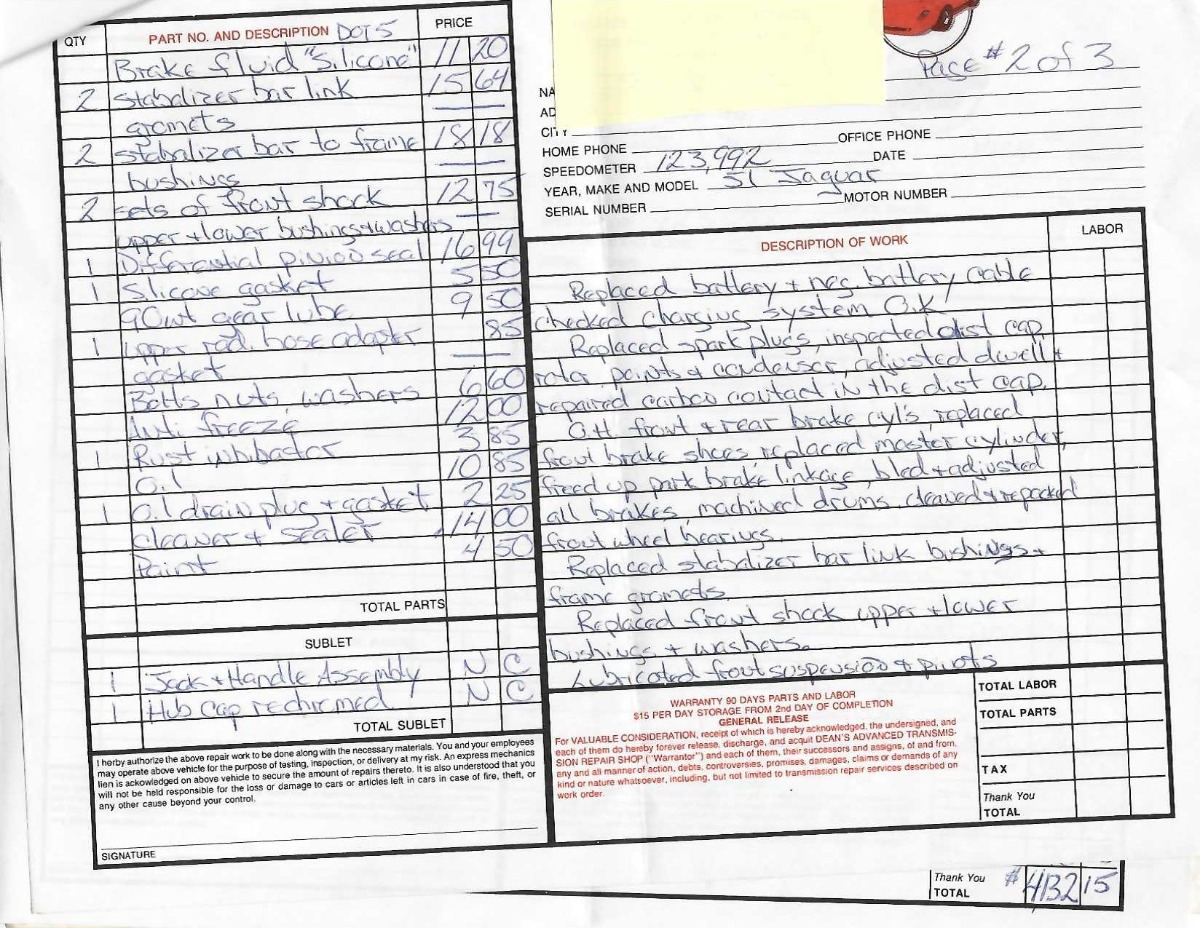 QTY PART NO. AND DESCRIPTION DOT 5 PRICE
Brake fluid "Silicone" 11 20
2 stabalizer bar link 15 64
gromets
2 stabalizer bar to frame 18 18
bushings
2 sets of front shock 12 75
upper + lower bushings + washers
1 Differential pinion seal 16 99
1 Silicone gasket 5 50
90wt gear lube 9 50
1 upper rad. hose adapter 85
gasket
Bolts nuts, washers 6 60
Anti freeze 12 00
1 Rust inhibator 3 85
Oil 10 85
1 Oil drain plug + gasket 2 25
cleaner + sealer 14 00
Paint 4 50
TOTAL PARTS
SUBLET
1 Jack + Handle Assembly N C
1 Hub Cap rechromed N C
TOTAL SUBLET
I herby authorize the above repair work to be done along with the necessary materials. You and your employees
may operate above vehicle for the purpose of testing, inspection, or delivery at my risk. An express mechanics
lien is acknowledged on above vehicle to secure the amount of repairs thereto. It is also understood that you
will not be held responsible for the loss or damage to cars or articles left in cars in case of fire, theft, or
any other cause beyond your control.
SIGNATURE
Page #2 of 3
NA
AD
CITY
HOME PHONE OFFICE PHONE
SPEEDOMETER 123,992 DATE
YEAR, MAKE AND MODEL 51 Jaguar
SERIAL NUMBER MOTOR NUMBER
DESCRIPTION OF WORK LABOR
Replaced battery + neg. battery cable
checked charging system O.K
Replaced spark plugs, inspected dist cap
rotor, points & condenser, adjusted dwell +
repaired carbon contact in the dist cap.
O.H. front + rear brake cyl's, replaced
front brake shoes replaced master cylinder,
freed up park brake linkage, bled + adjusted
all brakes, machined drums, cleaned + repacked
front wheel bearings.
Replaced stabalizer bar link bushings +
frame gromets.
Replaced front shock upper + lower
bushings + washers.
Lubricated front suspension + pivots
WARRANTY 90 DAYS PARTS AND LABOR
$15 PER DAY STORAGE FROM 2nd DAY OF COMPLETION
GENERAL RELEASE
For VALUABLE CONSIDERATION, receipt of which is hereby acknowledged, the undersigned, and
each of them do hereby forever release, discharge, and acquit DEAN'S ADVANCED TRANSMIS-
SION REPAIR SHOP ("Warrantor") and each of them, their successors and assigns, of and from,
any and all manner of action, debts, controversies, promises, damages, claims or demands of any
kind or nature whatsoever, including, but not limited to transmission repair services described on
work order.
TOTAL LABOR
TOTAL PARTS
TAX
Thank You
TOTAL
Thank You
TOTAL # 4132 15